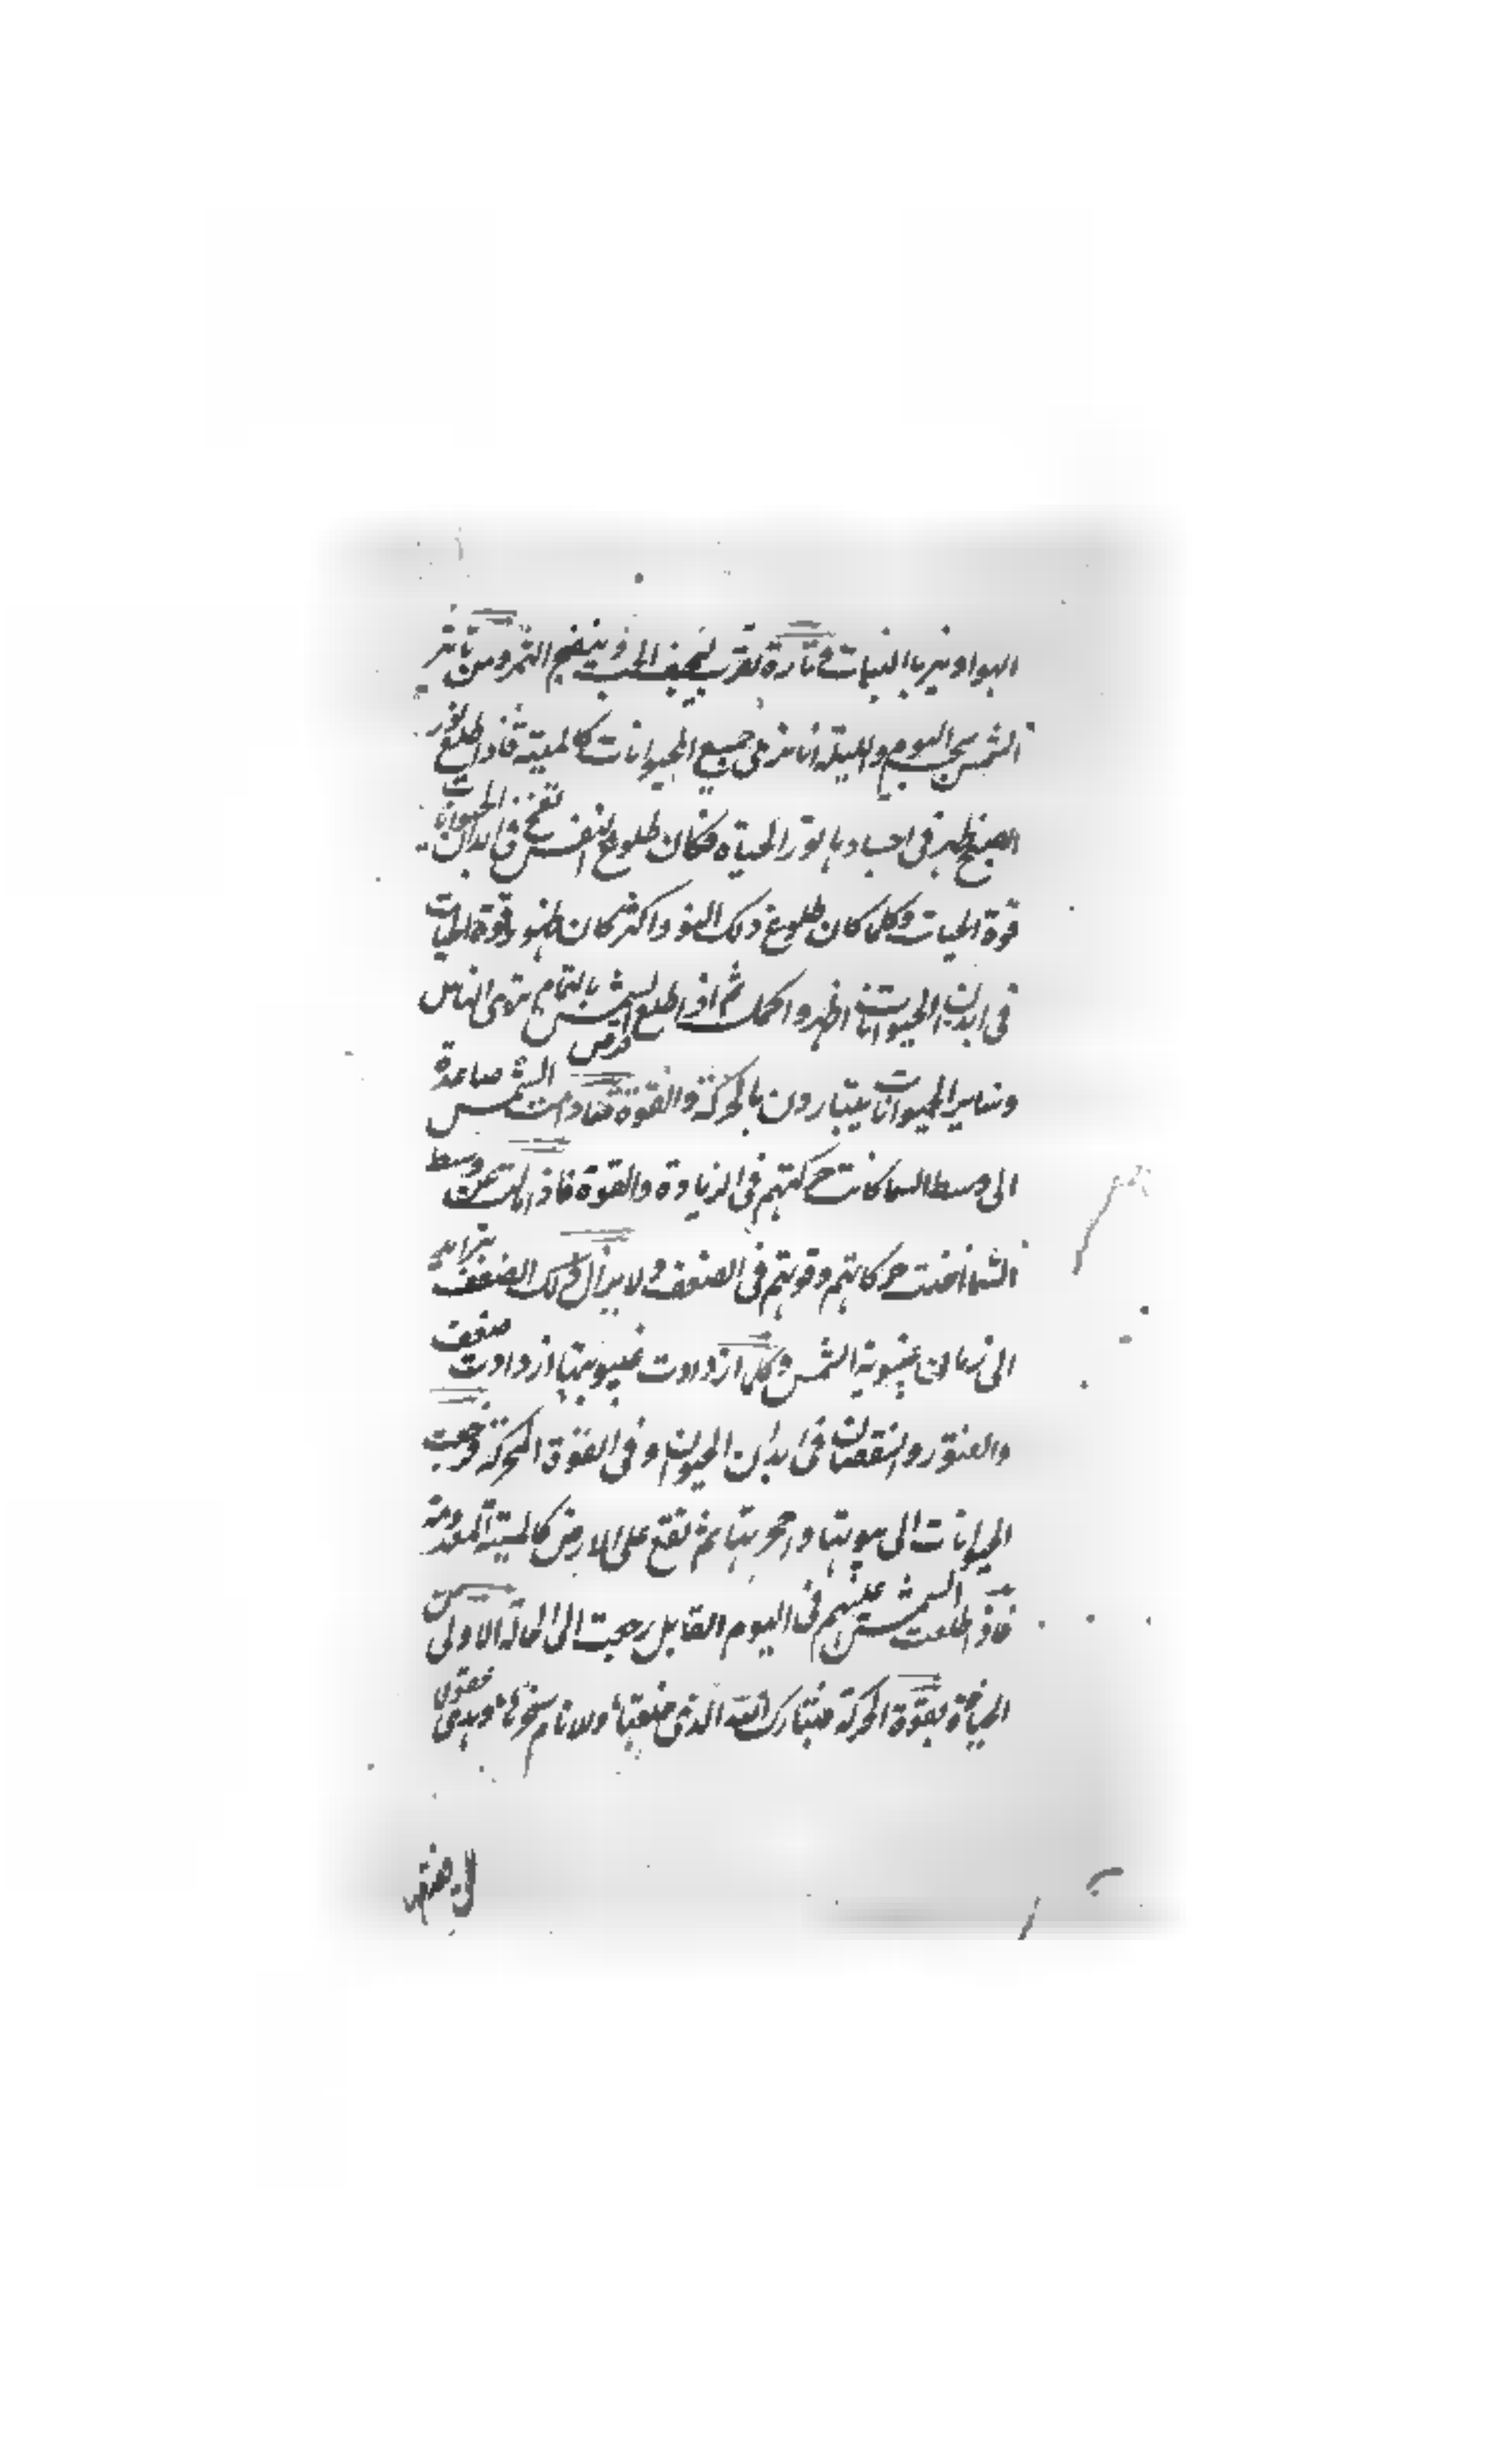 الهوا ويبربا النبات وتارة تقرب ليجفف الحب وينضج الثمر ومن تاثير
الشمس بحسب اليوم والليلة انا نرى جميع الحيوانات كالميتة فاذا طلع نور
الصبح ظهر في اجسادها نور الحياة فكان طلوع النفس تنفخ في ابدان الحيوانات
قوة الحيات وكلما كان طلوع ذلك النور اكثر كان ظهور قوة الحيات
في ابدان الحيوانات اظهر واكمل ثم اذا طلع قرص الشمس بالتمام ترى الناس
وساير الحيوانات يتبارون بالحركة والقوة فما دامت الشمس صاعدة
الى وسط السما كانت حركتهم في الزيادة والقوة فاذا مالت عن وسط
السما اخذت حركاتهم وقوتهم في الضعف ولا يزال ذلك الضعف يتزايد
الى زمان غيبوبة الشمس وكلما ازدادت غيبوبتها ازدادت ضعف
والفتور والنقصان في ابدان الحيوان وفي القوة المحركة ورجعت
الحيوانات الى بيوتها واحجرتها ثم تقع على الارض كالميتة المعدومة
فاذا طلعت الشمس عليهم في اليوم القابل رجعت الى الحالة الاولى من
الحياة بقوة الحركة فتبارك الله الذي خلقها ولانام سخرها وهدى عقول